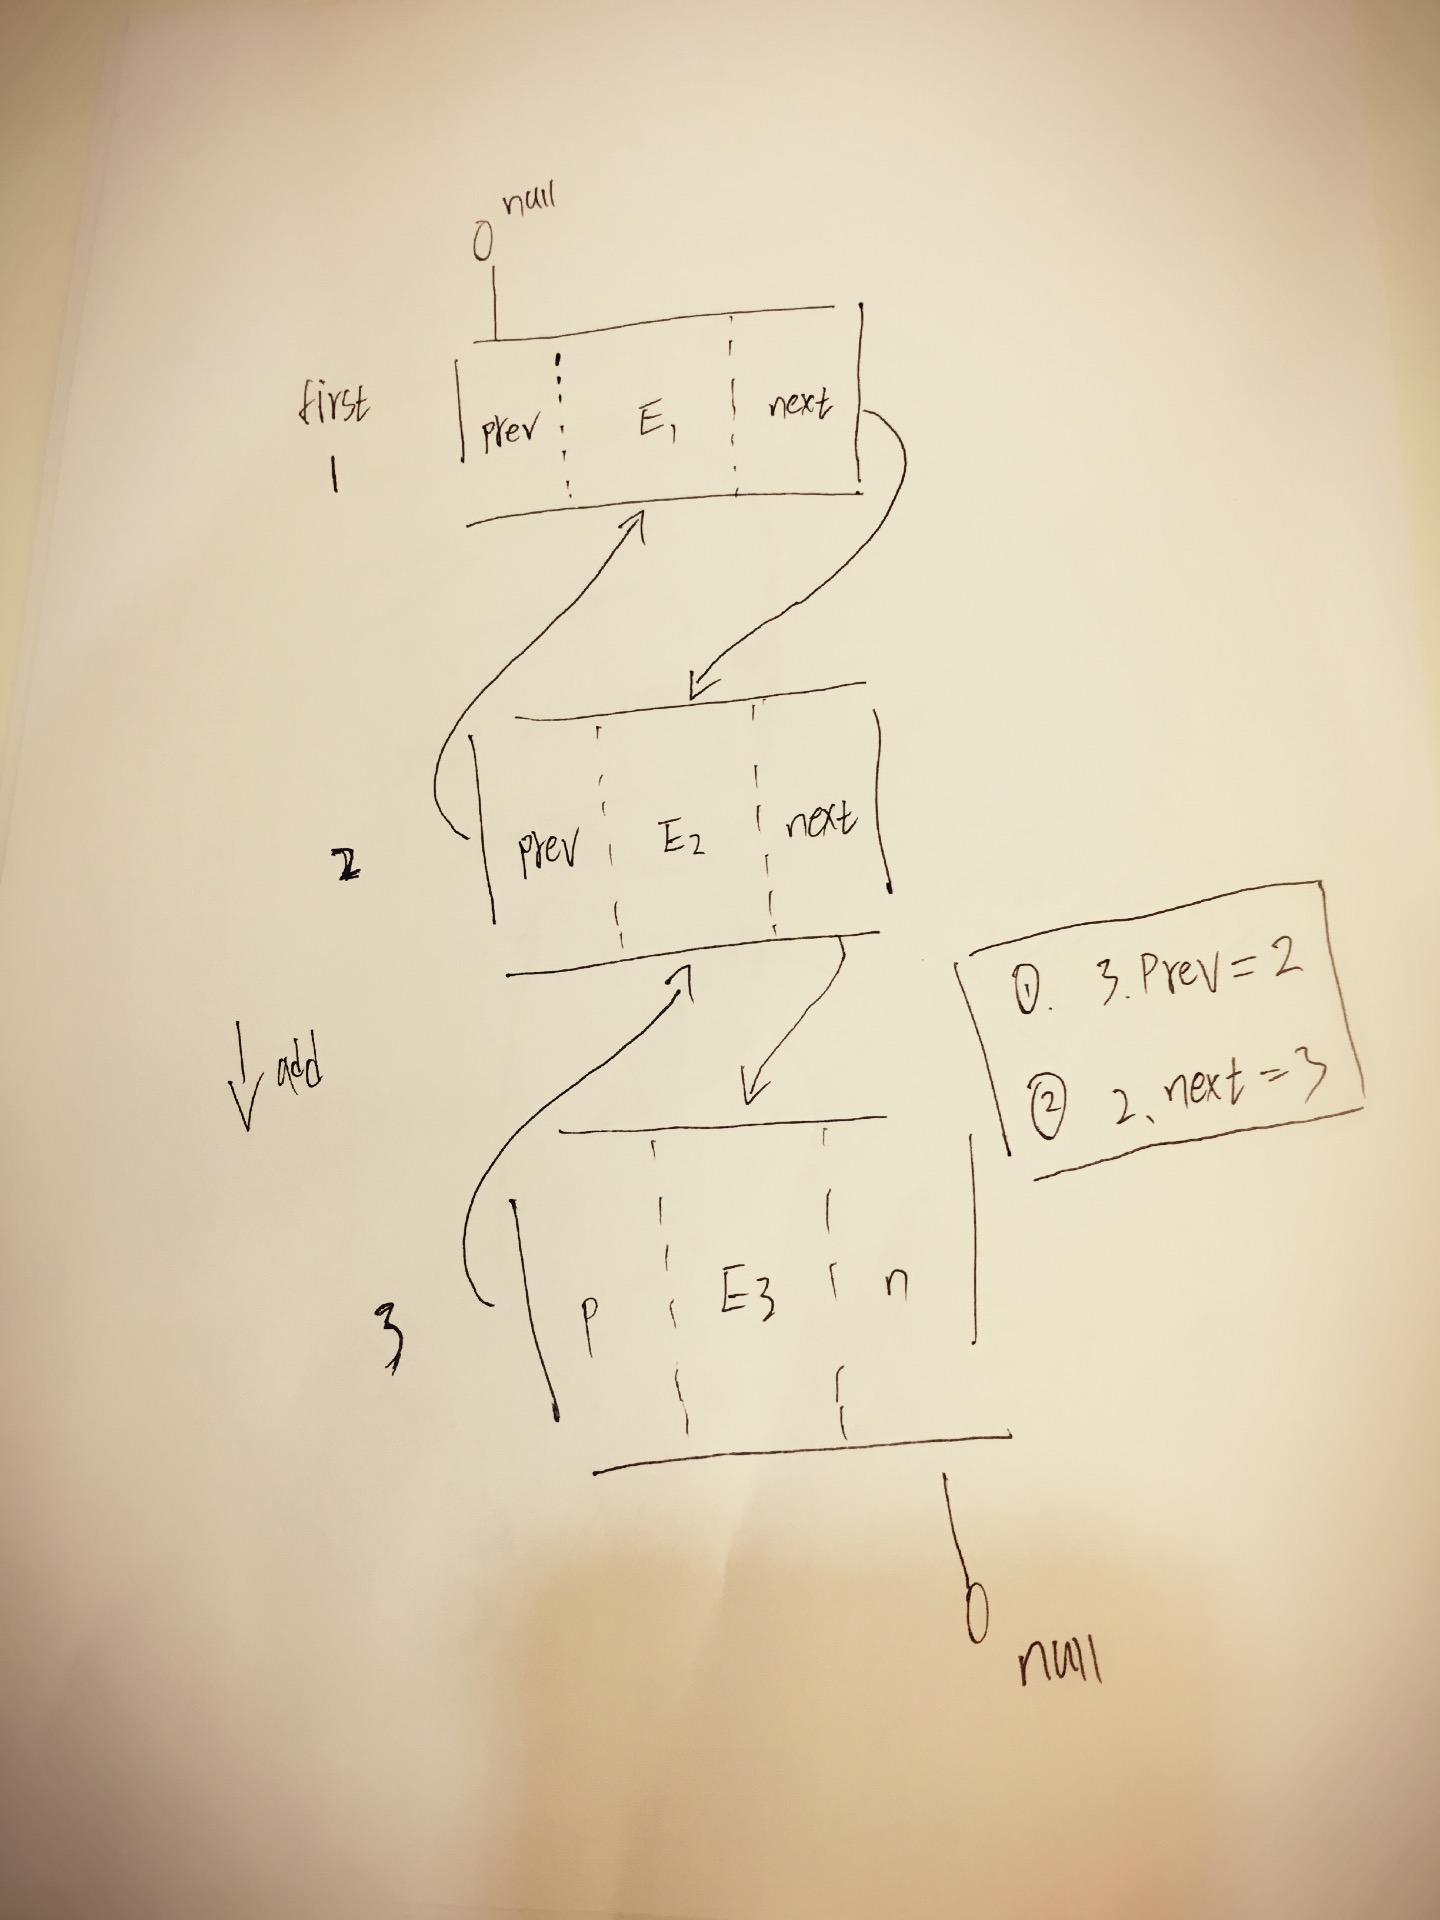 null
first
1
prev E1 next
2
prev E2 next
↓ add
①. 3.Prev=2
② 2.next=3
3
p E3 n
null